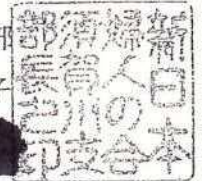 新日本
婦人の会
須賀川支
部長之印